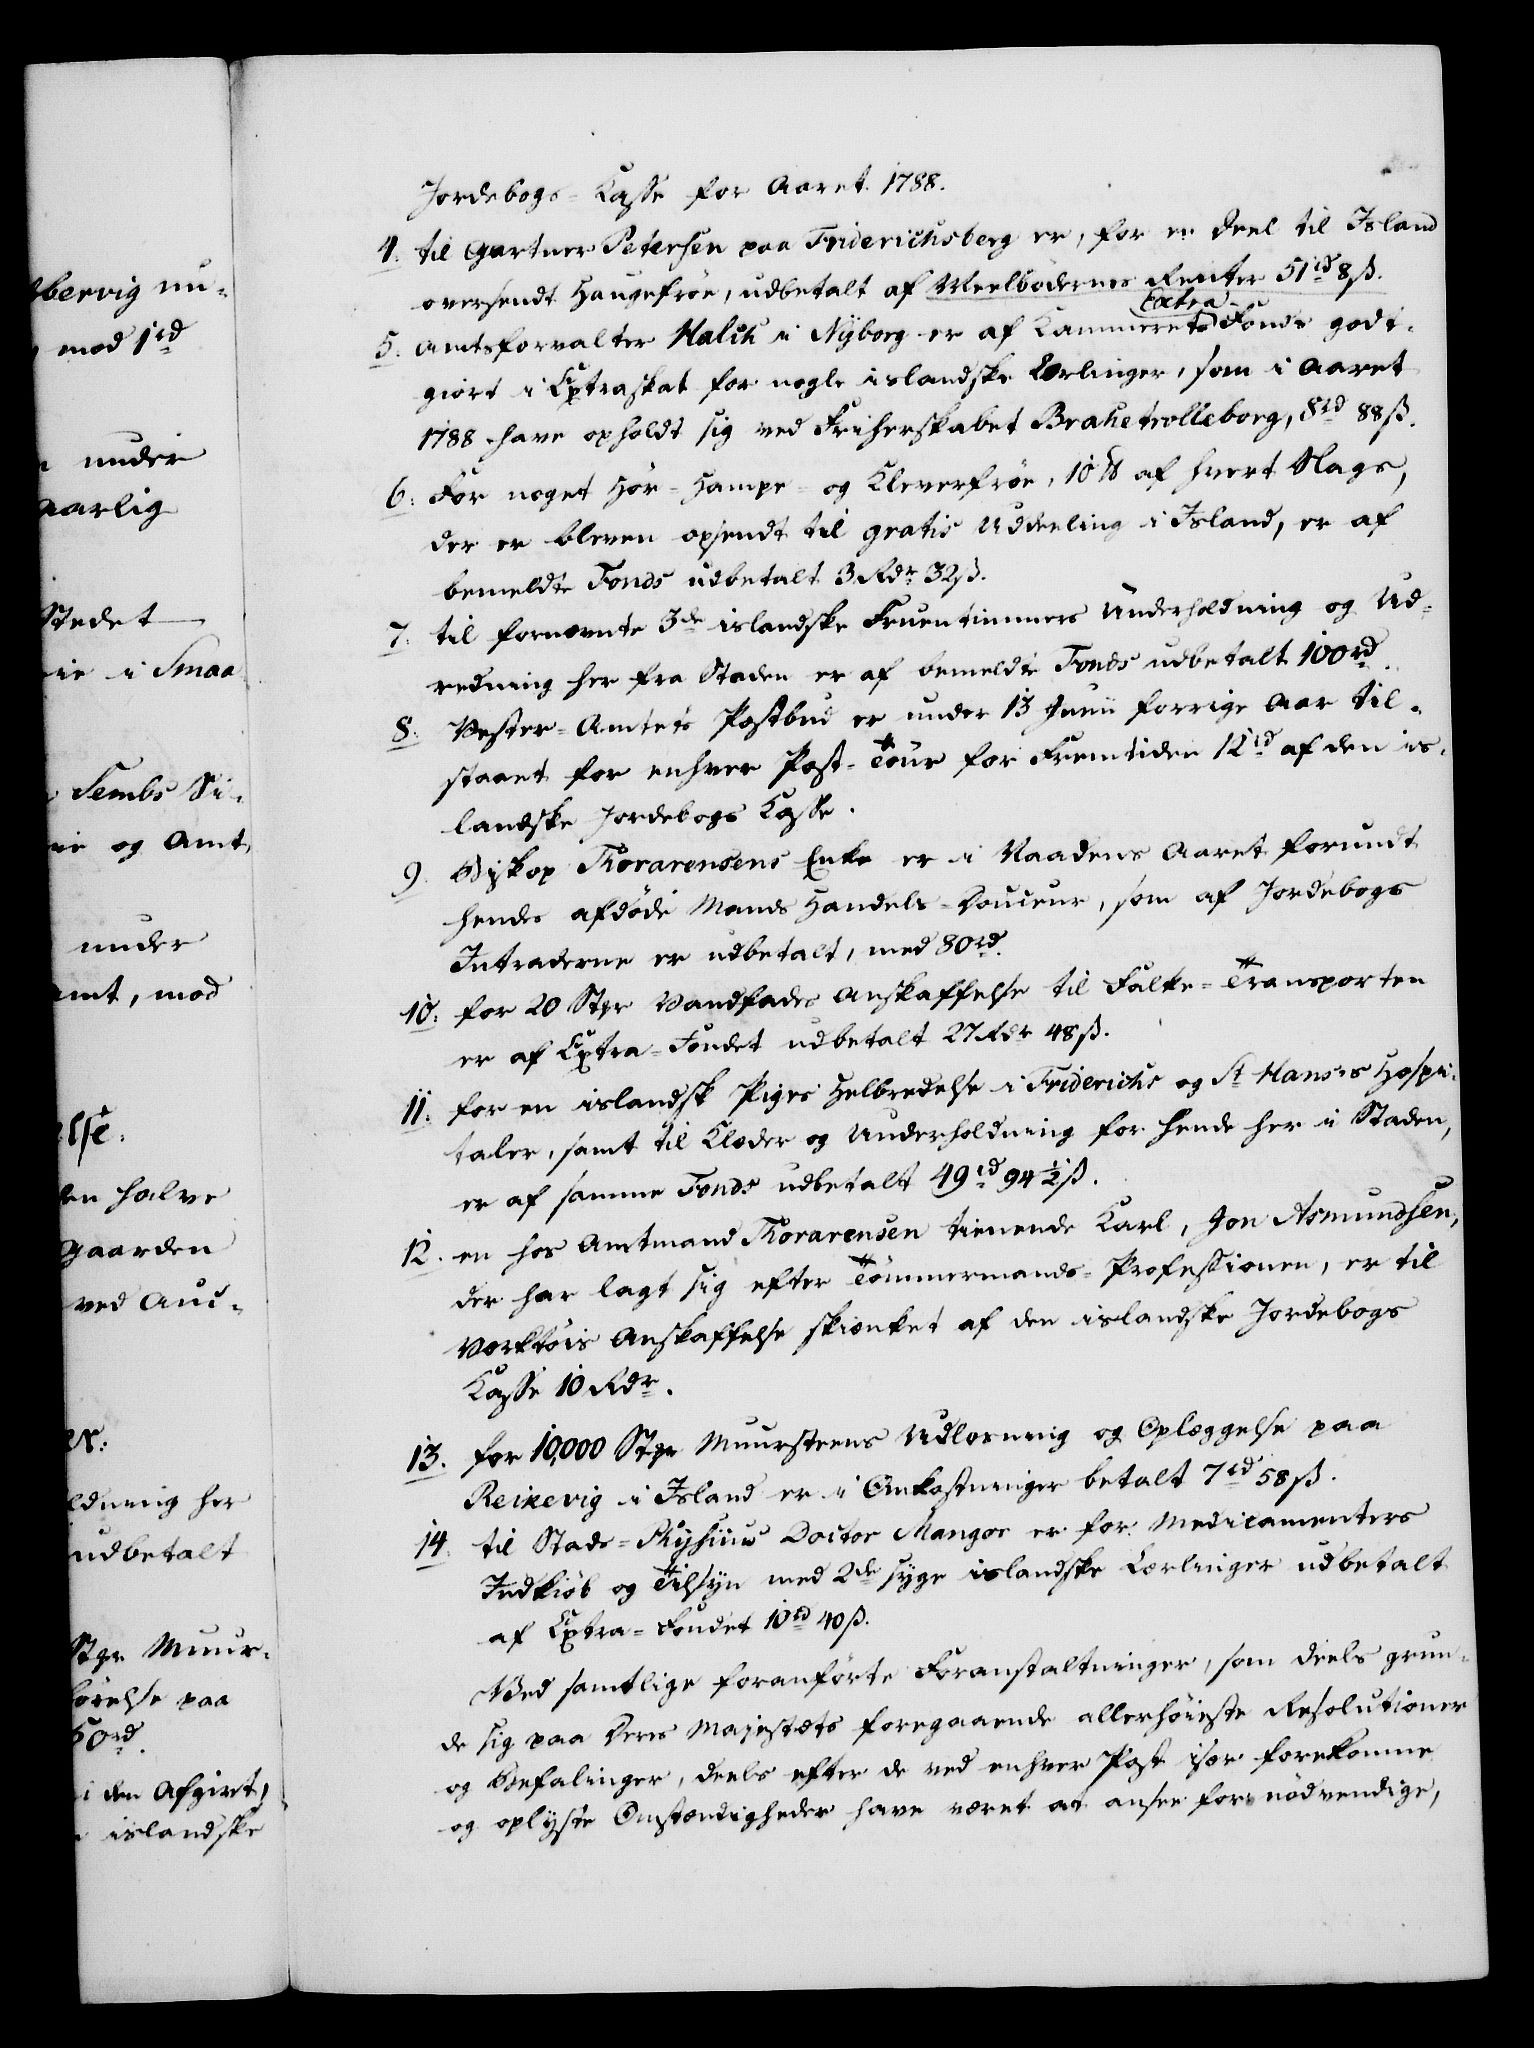 bervig nu-
mod 1rd
under
aarlig
Stedet
ie i Smaa
Sembs Si-
ie og Amt,
under
amt, mod
else:
den halve
gaarden
ved Auc-
er:
ldning her
udbetalt
Stkr Muur-
førelse paa
50rd.
i den Afgivt,
islandske
Jordebogs-Casse for Aaret 1788.
4. til Gartner Petersen paa Friderichsberg er, for en Deel til Island
oversendt Haugefrøe, udbetalt af Meelbødernes Renter 51rd 8ß.
Extra
5. Amtsforvalter Halck i Nyborg er af Kammerets Fonds godt-
giort i Extraskat for nogle islandske Lærlinger, som i Aaret
1788 have opholdt sig ved Friherskabet Brahetrolleborg, 8rd 88ß.
6. For noget Hør- Hampe- og Kleverfrøe, 10 ℔ af hvert Slags,
der er bleven opsendt til gratis Uddeeling i Island, er af
bemeldte Fonds udbetalt 3 Rdr 32ß.
7. til fornevnte 3de islandske Fruentimmers Underholdning og Ud-
redning her fra Staden er af bemeldte Fonds udbetalt 100rd.
8. Vester-Amtets Postbud er under 13 Junii forrige Aar til-
staaet for enhver Post-Tour for Fremtiden 12rd af den is-
landske Jordebogs Casse.
9. Biskop Thorarensens Enke er i Naadens Aaret forundt
hendes afdøde Mands Handels-Douceur, som af Jordebogs
Intraderne er udbetalt, med 80rd.
10. for 20 Stkr Vandfades Anskaffelse til Falke-Transporten
er af Extra-Fondet udbetalt 27 Rdr 48ß.
11. for en islandsk Piges Helbredelse i Friderichs og St Hanses Hospi-
taler, samt til Klæder og Underholdning for hende her i Staden,
er af samme Fonds udbetalt 49rd 94½ß.
12. en hos Amtmand Thorarensen tienende Karl, Jon Asmundsen,
der har lagt sig efter Tømmermands-Professionen, er til
Verktøis Anskaffelse skienket af den islandske Jordebogs
Casse 10 Rdr.
13. for 10,000 Stkr Muursteens Udlosning og Oplæggelse paa
Reikevig i Island er i Omkostninger betalt 7rd 58ß.
14. til Stads-Physicus Doctor Mangor er for Medicamenters
Indkiøb og Tilsyn med 2de syge islandske Lærlinger udbetalt
af Extra-Fondet 10rd 40ß.
Ved samtlige foranførte Foranstaltninger, som deels grun-
de sig paa Deres Majestæts foregaaende allerhøieste Resolutioner
og Befalinger, deels efter de ved enhver Post især forekomne
og oplyste Omstændigheder have været at ansee for nødvendige,